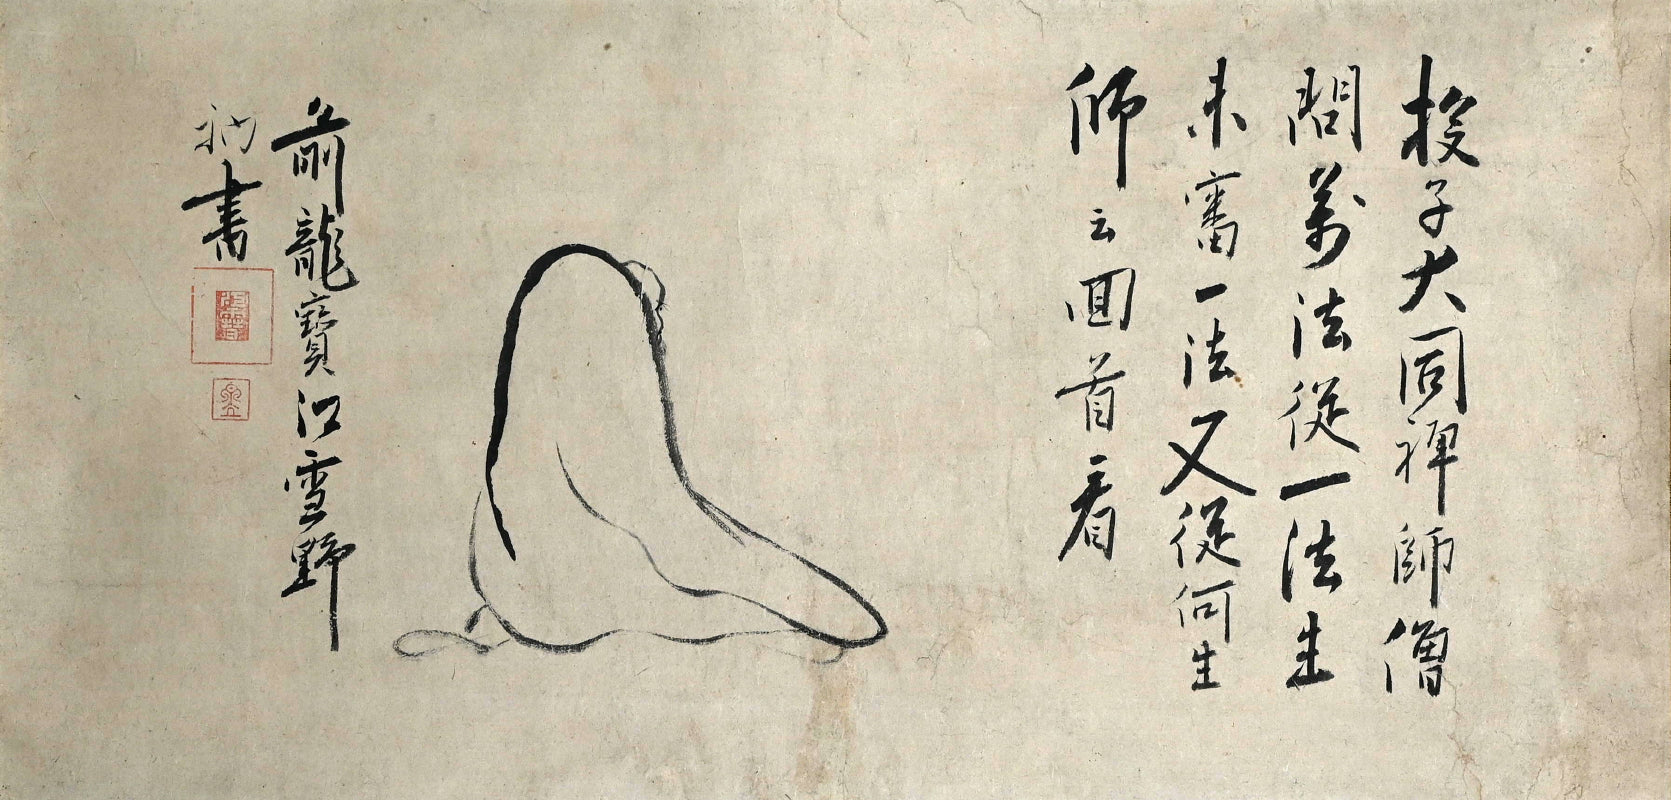 投子大同禅師僧
問萬法從一法生
未審一法又從何生
師云囬首看
前龍寶江雪野
衲書